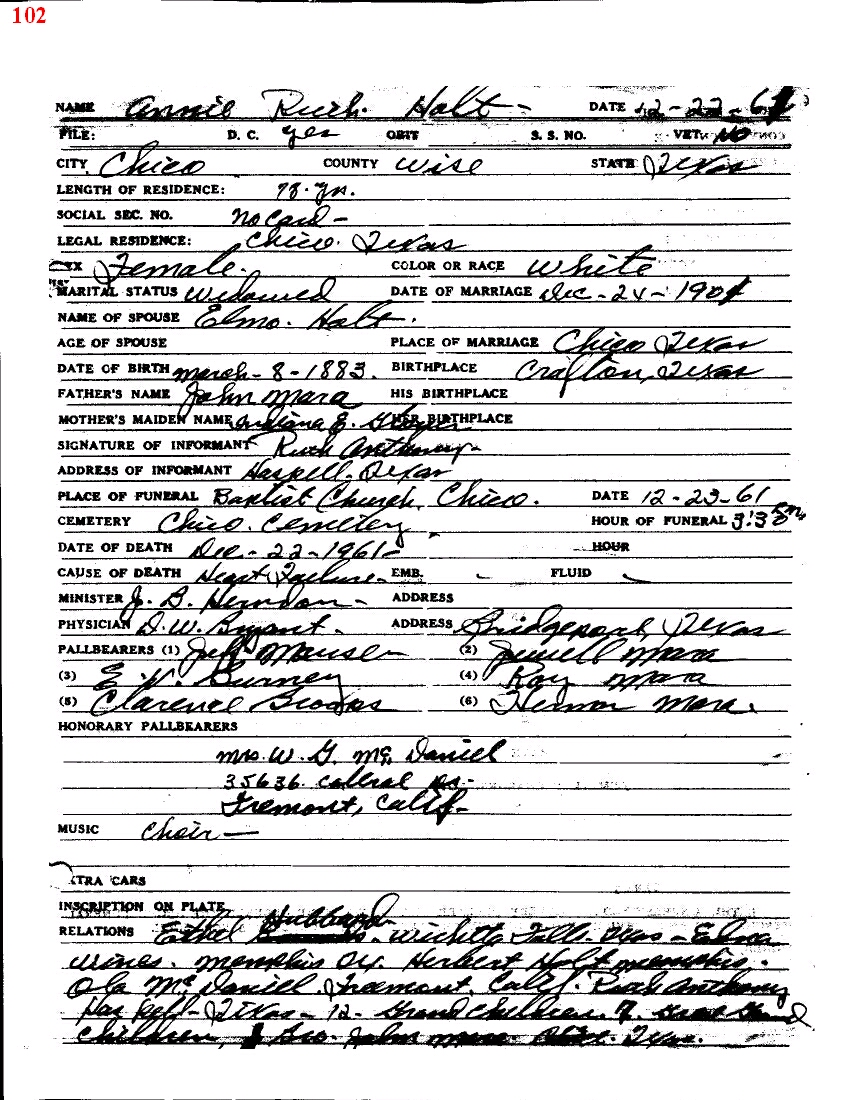 102
NAME Annie Ruth. Holt - DATE 12-22-61
FILE: D. C. yes OBIT S. S. NO. VET. No
CITY Chico COUNTY Wise STATE Texas
LENGTH OF RESIDENCE: 78. yr.
SOCIAL SEC. NO. No Card -
LEGAL RESIDENCE: Chico. Texas
SEX Female. COLOR OR RACE White
MARITAL STATUS Widowed DATE OF MARRIAGE Dec - 24 - 1901
NAME OF SPOUSE Elmo. Holt.
AGE OF SPOUSE PLACE OF MARRIAGE Chico Texas
DATE OF BIRTH March - 8 - 1883. BIRTHPLACE Crafton, Texas
FATHER'S NAME John Mara HIS BIRTHPLACE
MOTHER'S MAIDEN NAME E. HER BIRTHPLACE
SIGNATURE OF INFORMANT Ruth Anthony -
ADDRESS OF INFORMANT Texas
PLACE OF FUNERAL Baptist Church, Chico. DATE 12-23-61
CEMETERY Chico. Cemetery HOUR OF FUNERAL 3:30 PM
DATE OF DEATH Dec. - 22 - 1961 - HOUR
CAUSE OF DEATH Heart Failure - EMB. - FLUID -
MINISTER J. B. Herndon - ADDRESS
PHYSICIAN D. W. Bryant - ADDRESS Bridgeport, Texas
PALLBEARERS (1) Jeff (2) Jewell Mara
(3) E. V. Burney (4) Ray Mara
(5) Clarence (6) Herman Mara.
HONORARY PALLBEARERS
Mrs. W. G. Mc Daniel
35636
Fremont, Calif -
MUSIC Choir -
EXTRA CARS
INSCRIPTION ON PLATE
Hubbard
RELATIONS Ethel - Wichita Falls. Texas - Edna
Wines. Memphis Herbert Holt Memphis.
Ola Mc Daniel. Fremont, Calif. Ruth Anthony
Texas - 12 - Grand Children 7. Great Grand
Children, 1 Bro. John Mara Texas.